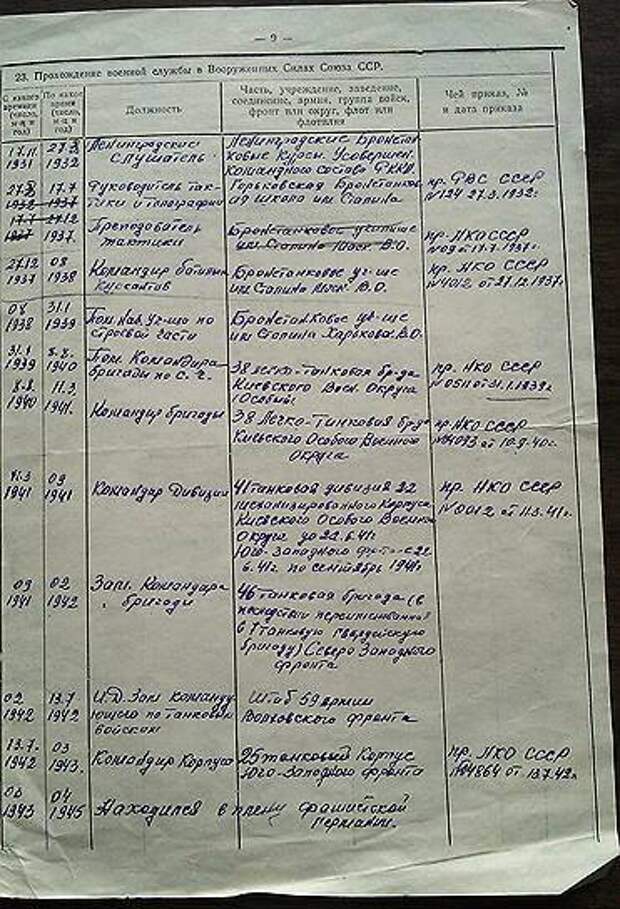 — 9 —
23. Прохождение военной службы в Вооруженных Силах Союза ССР.
С какого времени (число, м-ц и год)
По какое время (число, м-ц и год)
Должность
Часть, учреждение, заведение, соединение, армия, группа войск, фронт или округ, флот или флотилия
Чей приказ, № и дата приказа
17.11 1931
27.3 1932
Ленинградские
слушатель
Ленинградские Бронетан
ковые Курсы Усовершен.
Командного состава РККА.
27.3 1932
17.7 1937
Руководитель так-
тики и топографии
Горьковская Бронетанков
ая школа им Сталина
пр. РВС СССР
№124 27.3.1932г.
17.7 1937
27.12 1937.
Преподователь
тактики
Бронетанковое училище
им Сталина Моск. В.О.
пр. НКО СССР
27.12 1937
08 1938
Командир батальи
курсантов
Бронетанковое уч-ще
им Сталина Моск. В.О.
пр. НКО СССР
№4012 от 27.12.1937г.
08 1938
31.1 1939
Пом. нач. уч-ща по
строевой части
Бронетанковое уч-ще
им Сталина Харьков. В.О.
31.1 1939
8.8. 1940
Пом. Командира
бригады по с. ч.
38 легко-танковая бр-да
Киевского Воен. Округа
(Особый)
пр. НКО СССР
№0511 от 31.1.1939г.
8.8. 1940
11.3. 1941.
Командир бригады
38 Легко-Танковая бр-да
Киевского Особого Военного
Округа
пр. НКО СССР
№4093 от 10.9.40г.
11.3 1941
09 1941
Командир Дивизии
41 танковая дивизия 22
механизированного Корпуса
Киевского Особого Военно
Округа до 22.6.41г.
Юго-Западного фронта с 22.
6.41г. по сентябрь 1941г.
пр. НКО СССР
№0012 от 11.3.41г.
09 1941
02 1942
Зам. Командира
бригады
46 танковая бригада (в
последствии переименованная
в 7 танковую гвардейскую
бригаду) Северо Западного
фронта
02 1942
13.7 1942
И.Д. Зам команду
ющего по танковым
войскам
Штаб 59 армии
Волховского фронта
13.7. 1942
03 1943.
Командир Корпуса
25 танковый Корпус
Юго-Западного фронта
пр. НКО СССР
№04864 от 13.7.42г.
03 1943
04 1945
Находился в плену фашистской
Германии.